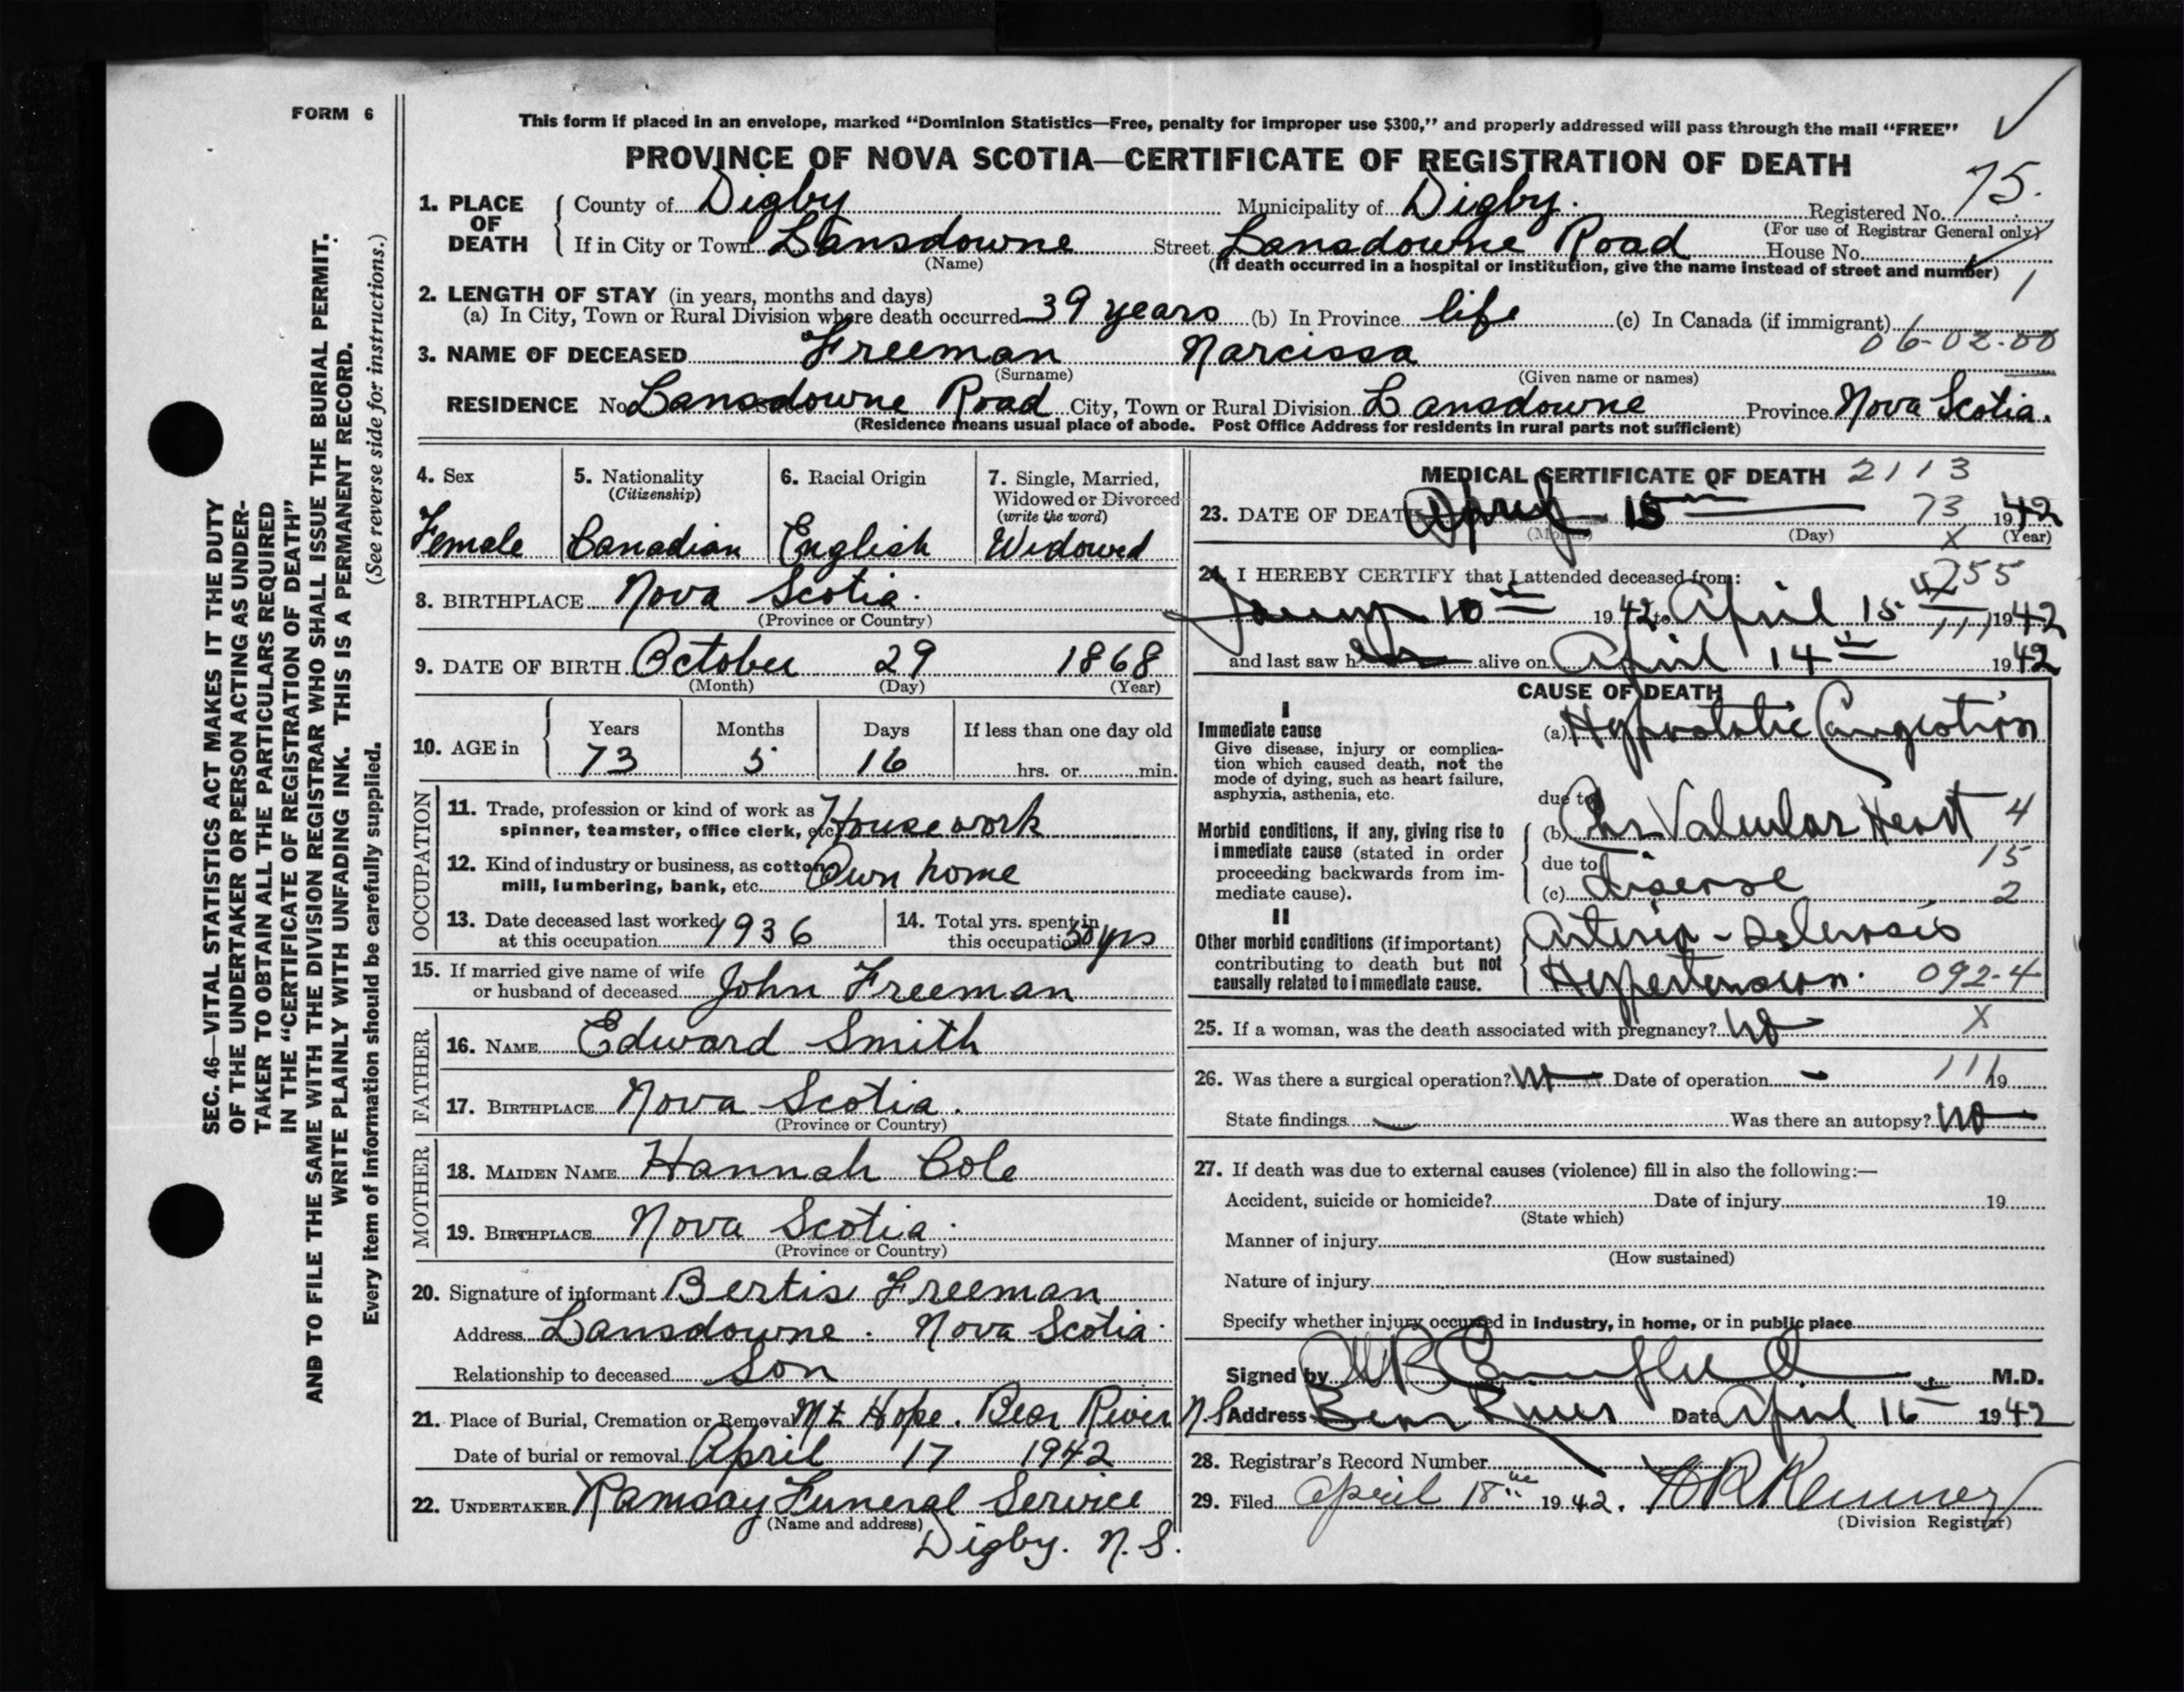 FORM 6
This form if placed in an envelope, marked "Dominion Statistics—Free, penalty for improper use $300," and properly addressed will pass through the mail "FREE"
PROVINCE OF NOVA SCOTIA—CERTIFICATE OF REGISTRATION OF DEATH
75.
1. PLACE OF DEATH
County of Digby Municipality of Digby. Registered No.
(For use of Registrar General only)
If in City or Town Lansdowne Street Lansdowne Road House No.
(Name) (If death occurred in a hospital or institution, give the name instead of street and number)
1
2. LENGTH OF STAY (in years, months and days)
(a) In City, Town or Rural Division where death occurred 39 years (b) In Province life (c) In Canada (if immigrant)
06-02-00
3. NAME OF DECEASED Freeman Narcissa
(Surname) (Given name or names)
RESIDENCE No. Lansdowne Road City, Town or Rural Division Lansdowne Province Nova Scotia.
(Residence means usual place of abode. Post Office Address for residents in rural parts not sufficient)
4. Sex
Female
5. Nationality
(Citizenship)
Canadian
6. Racial Origin
English
7. Single, Married,
Widowed or Divorced
(write the word)
Widowed
8. BIRTHPLACE Nova Scotia.
(Province or Country)
9. DATE OF BIRTH October 29 1868
(Month) (Day) (Year)
10. AGE in
Years Months Days If less than one day old
73 5 16 hrs. or min.
OCCUPATION
11. Trade, profession or kind of work as
spinner, teamster, office clerk, etc. Housework
12. Kind of industry or business, as cotton
mill, lumbering, bank, etc. Own home
13. Date deceased last worked
at this occupation 1936
14. Total yrs. spent in
this occupation 50 yrs
15. If married give name of wife
or husband of deceased John Freeman
FATHER
16. NAME Edward Smith
17. BIRTHPLACE Nova Scotia.
(Province or Country)
MOTHER
18. MAIDEN NAME Hannah Cole
19. BIRTHPLACE Nova Scotia.
(Province or Country)
20. Signature of informant Bertis Freeman
Address Lansdowne. Nova Scotia.
Relationship to deceased Son
21. Place of Burial, Cremation or Removal Mt Hope. Bear River N.S
Date of burial or removal April 17 1942
22. UNDERTAKER Ramsay Funeral Service
(Name and address)
Digby. N.S.
MEDICAL CERTIFICATE OF DEATH 2113
23. DATE OF DEATH April 15th 73 1942
(Month) (Day) (Year)
X
24. I HEREBY CERTIFY that I attended deceased from: 255
10th 1942 to April 15th 1942
111
and last saw her alive on April 14th 1942
CAUSE OF DEATH
I
Immediate cause
Give disease, injury or complication which caused death, not the
mode of dying, such as heart failure,
asphyxia, asthenia, etc.
(a) Hypostatic Congestion
due to
Morbid conditions, if any, giving rise to
immediate cause (stated in order
proceeding backwards from immediate cause).
(b) Chr Valvular Heart 4
due to 15
(c) disease 2
II
Other morbid conditions (if important)
contributing to death but not
causally related to immediate cause.
Arterio-sclerosis
Hypertension. 092-4
25. If a woman, was the death associated with pregnancy? No X
26. Was there a surgical operation? No Date of operation — 111 19
State findings — Was there an autopsy? No
27. If death was due to external causes (violence) fill in also the following:—
Accident, suicide or homicide? Date of injury 19
(State which)
Manner of injury
(How sustained)
Nature of injury
Specify whether injury occurred in industry, in home, or in public place
Signed by M.D.
Address Bear River Date April 16th 1942
28. Registrar's Record Number
29. Filed April 18th 1942.
(Division Registrar)
SEC. 46—VITAL STATISTICS ACT MAKES IT THE DUTY
OF THE UNDERTAKER OR PERSON ACTING AS UNDER-
TAKER TO OBTAIN ALL THE PARTICULARS REQUIRED
IN THE "CERTIFICATE OF REGISTRATION OF DEATH"
AND TO FILE THE SAME WITH THE DIVISION REGISTRAR WHO SHALL ISSUE THE BURIAL PERMIT.
WRITE PLAINLY WITH UNFADING INK. THIS IS A PERMANENT RECORD.
Every item of information should be carefully supplied. (See reverse side for instructions.)